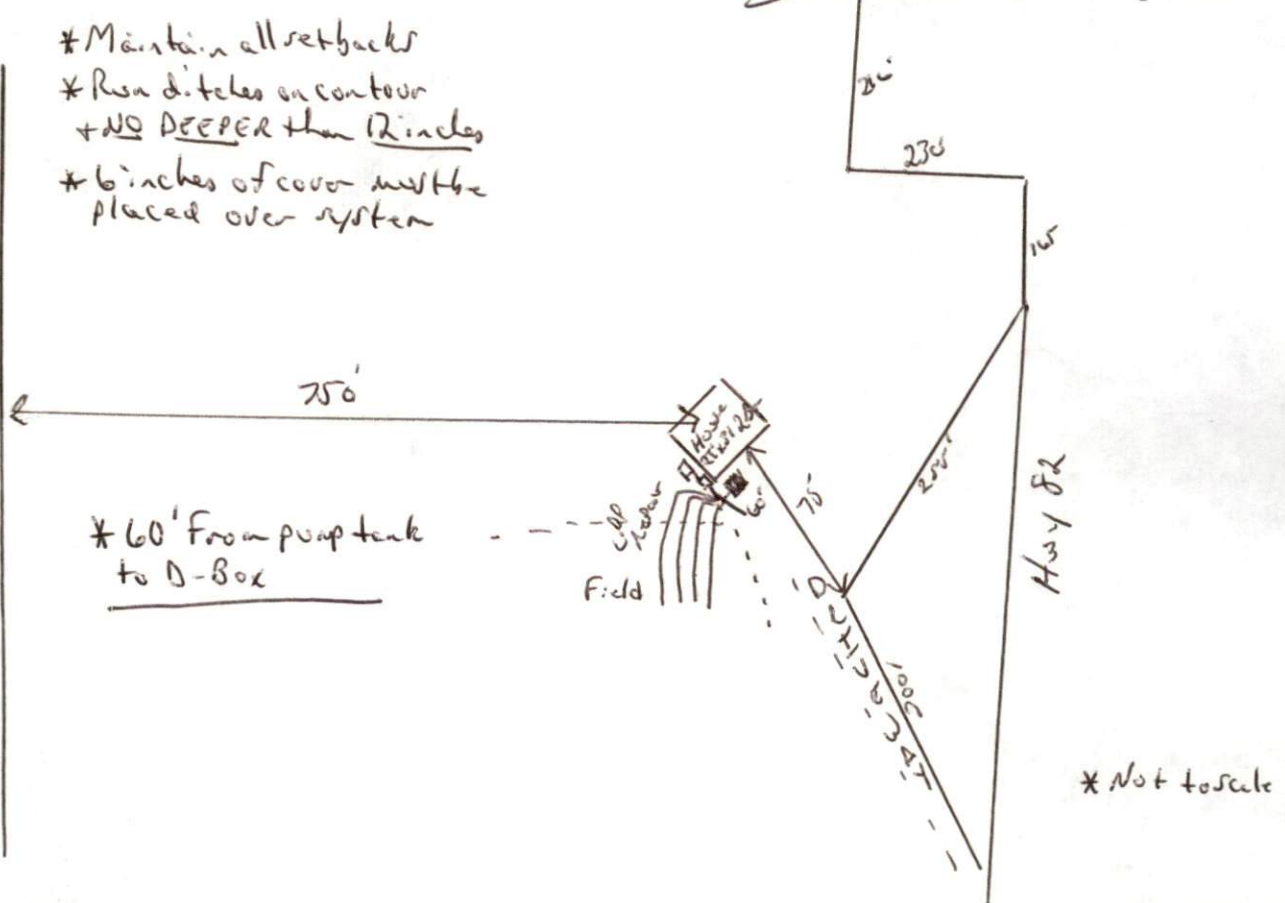 * Maintain all setbacks
* Run ditches on contour
+ NO DEEPER than 12 inches
* 6 inches of cover must be
placed over system
230'
165
750'
House
75'
60'
* 60' From pump tank
to D-Box
Repair
Field
Hwy 82
300'
* Not to scale